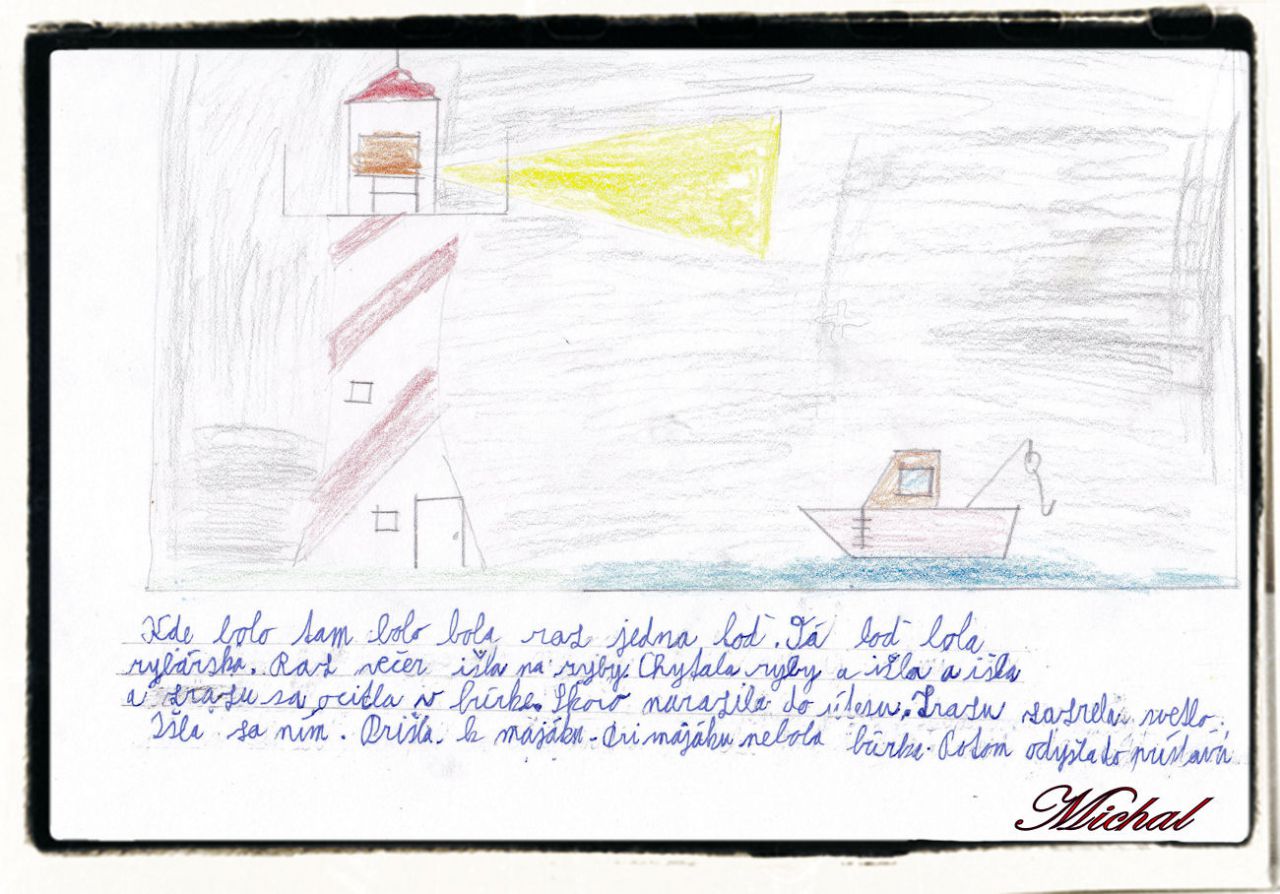 Kde bolo tam bolo bola raz jedna loď. Tá loď bola
rybárska. Raz večer išla na ryby. Chytala ryby a išla a išla
a zrazu sa ocitla v búrke. Skoro narazila do útesu. Zrazu zazrela svetlo.
Išla za ním. Prišla k majáku. Pri majáku nebola búrka. Potom do
Michal